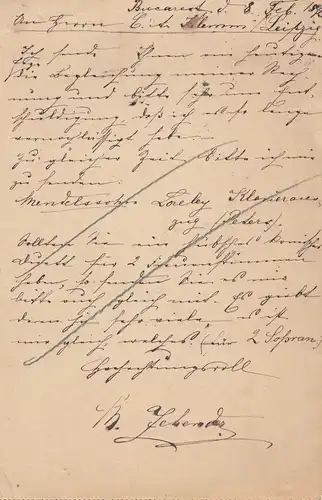 Bucarest d. 8. Feb. 189
An Herrn C. A. Klemm / Leipzig
Ich sende Ihnen im heutigen
die Begleichung meiner Rech
nung und bitte sehr um Ent
schuldigung, daß ich es so lange
vernachlässigt habe.
Zu gleicher Zeit bitte ich mir
zu senden
Mendelssohn Loreley Klavieraus
zug (Peters).
Sollten Sie ein hübsches komisches
Duett für 2 Frauenstimmen
haben, so senden Sie es mir
bitte auch gleich mit. Es giebt
deren ja sehr viele, es ist
mir gleich welches (für 2 Sopran)
Hochachtungsvoll